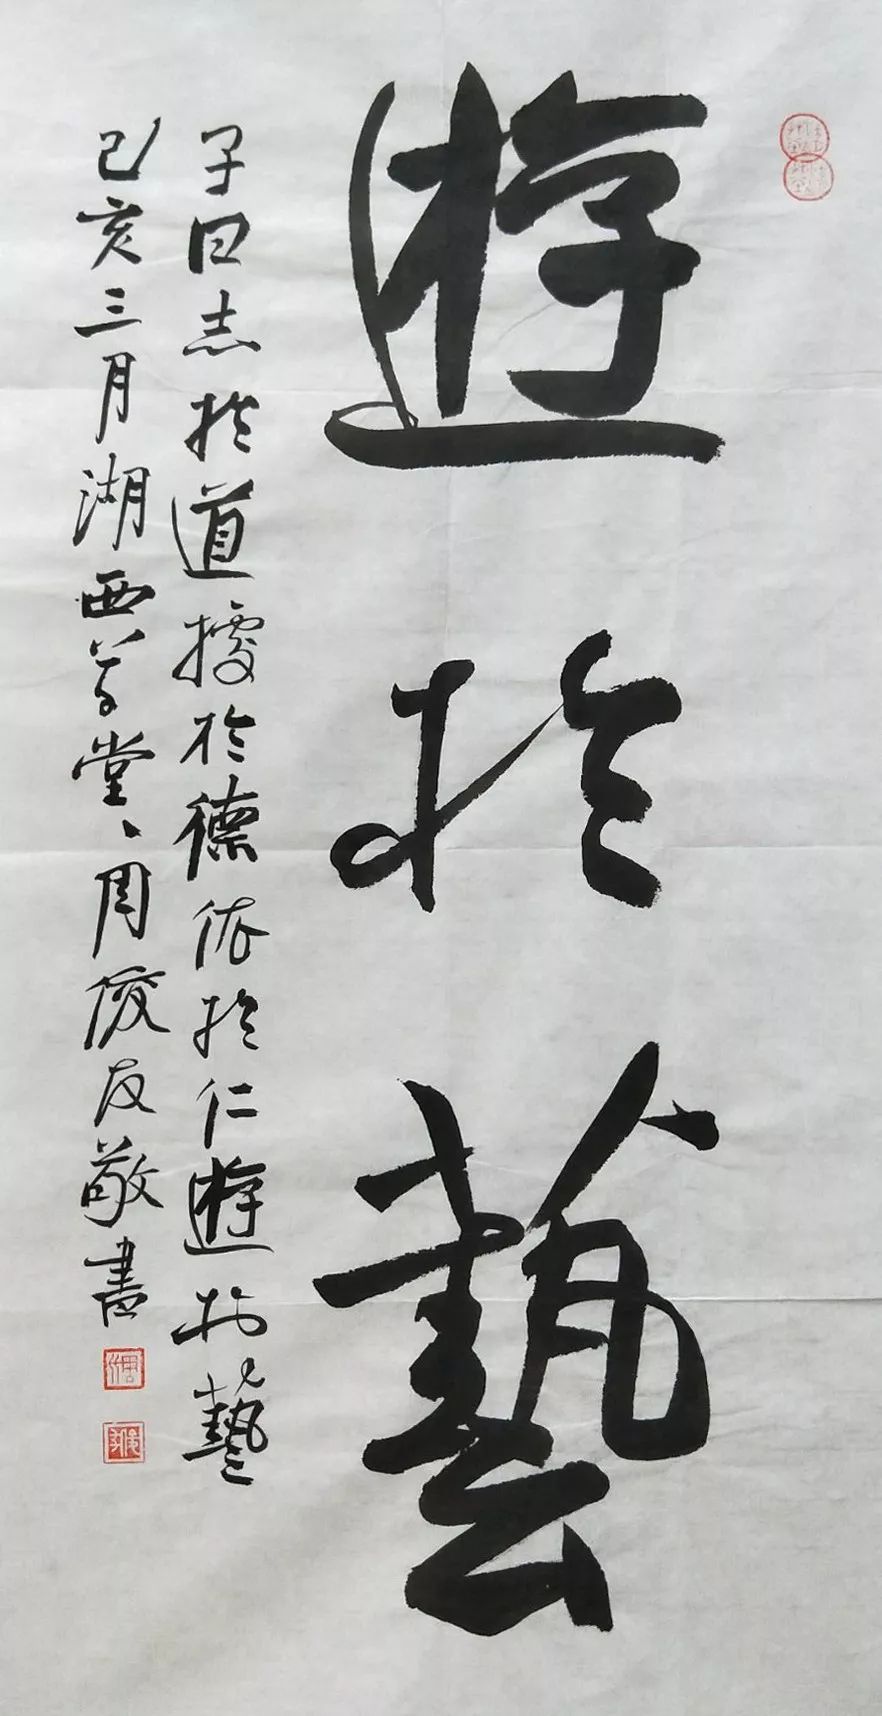 遊於藝
子曰志於道據於德依於仁遊於藝
己亥三月湖西草堂周俊友敬書